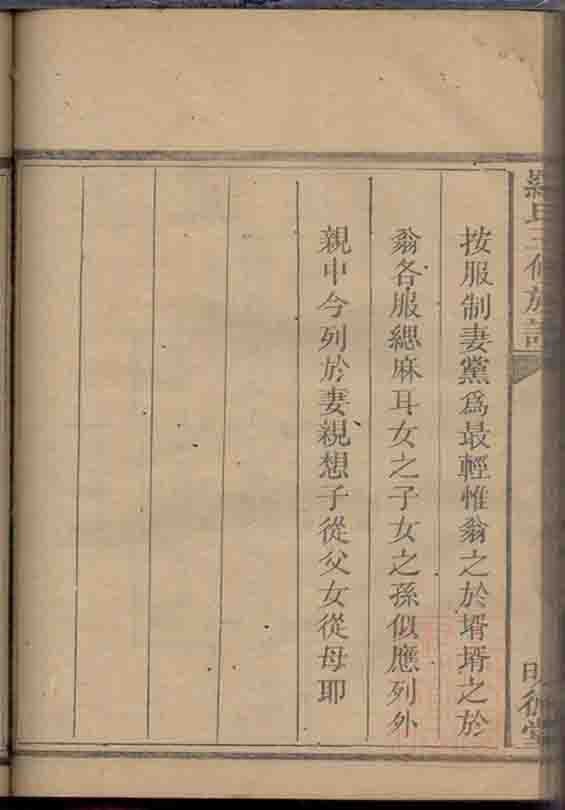 羅氏三修族譜
明德堂
按服制妻黨爲最輕惟翁之於壻壻之於
翁各服緦麻耳女之子女之孫似應列外
親中今列於妻親想子從父女從母耶